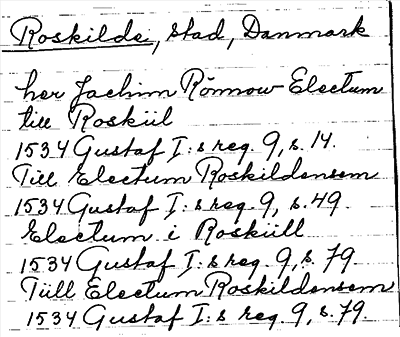 Roskilde, stad, Danmark
her Jachim Rönnow Electum
till Roskiil
1534 Gustaf I:s reg. 9, s. 14.
Till Electum Roskildensem
1534 Gustaf I:s reg. 9, s. 49.
Electum i Roskiill
1534 Gustaf I:s reg. 9, s. 79.
Tiill Electum Roskildensem
1534 Gustaf I:s reg. 9, s. 79.